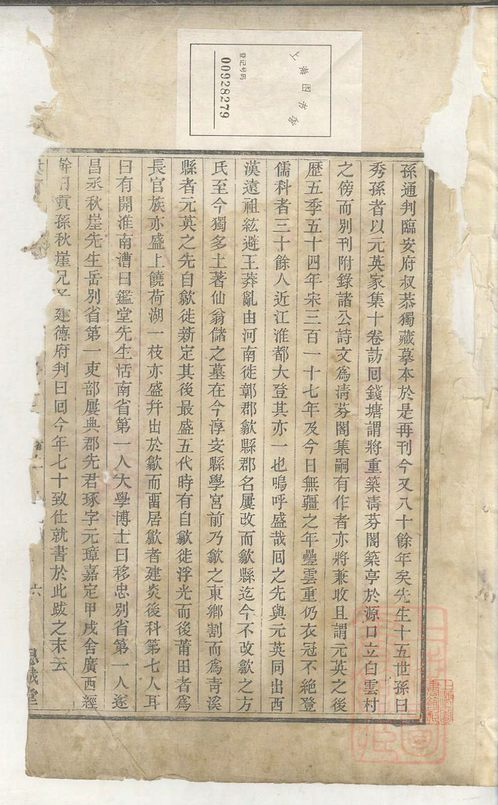 上海图书馆
登记号码
00928279
孫通判臨安府叔恭獨藏摹本於是再刋今又八十餘年矣先生十五世孫曰
秀孫者以元英家集十卷訪囘錢塘謂將重築清芬閣築亭於源口立白雲村
之傍而別刋附錄諸公詩文爲清芬閣集嗣有作者亦將兼收且謂元英之後
歷五季五十四年宋三百一十七年及今日無疆之年疊雲重仍衣冠不絶登
儒科者三十餘人近江淮都大登其亦一也嗚呼盛哉囘之先與元英同出西
漢遠祖紘避王莽亂由河南徙彰郡歙縣郡名屢改而歙縣迄今不改歙之方
氏至今獨多土著仙翁儲之墓在今淳安縣學宮前乃歙之東鄉割而爲青溪
縣者元英之先自歙徙新定其後最盛五代時有自歙徙浮光而後莆田者爲
長官族亦盛上饒荷湖一枝亦盛幷出於歙而畱居歙者建炎後科第七人耳
曰有開淮南漕曰鑑堂先生恬南省第一人大學博士曰移忠別省第一人迄
昌丞秋崖先生岳別省第一東部屢典郡先君琢字元璋嘉定甲戌舍廣西經
幹曰貢孫秋崖兄子建德府判曰囘今年七十致仕就書於此跋之末云
六